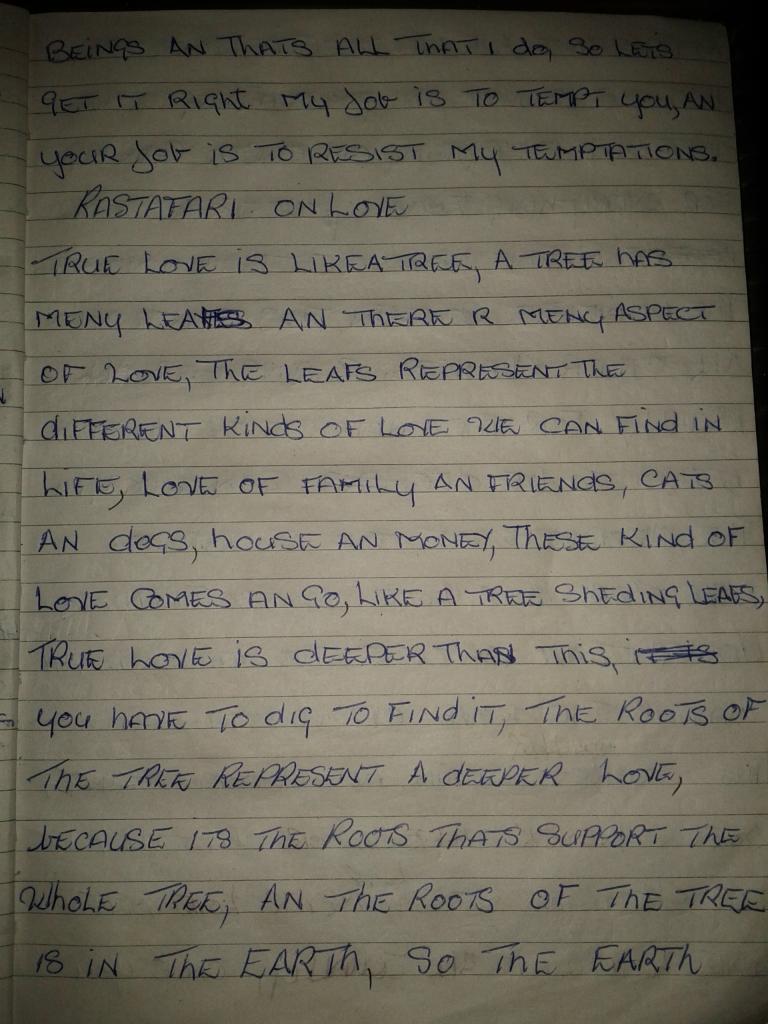 BEINGS AN THATS ALL THAT I do, SO LETS
GET IT RIGHT MY Job IS TO TEMPT you, AN
YOUR Job IS TO RESIST MY TEMPTATIONS.
RASTAFARI ON LOVE
TRUE LOVE IS LIKE A TREE, A TREE HAS
MENY LEAVES AN THERE R MENY ASPECT
OF LOVE, THE LEAFS REPRESENT THE
dIFFERENT KINdS OF LOVE WE CAN FINd IN
LIFE, LOVE OF FAMILY AN FRIENdS, CATS
AN dOGS, HOUSE AN MONEY, THESE KINd OF
LOVE COMES AN GO, LIKE A TREE SHEdING LEAFS,
TRUE LOVE IS dEEPER THAN THIS,
YOU HAVE TO dIG TO FINd IT, THE ROOTS OF
THE TREE REPRESENT A dEEPER LOVE,
bECAUSE ITS THE ROOTS THATS SUPPORT THE
WHOLE TREE, AN THE ROOTS OF THE TREE
IS IN THE EARTH, SO THE EARTH